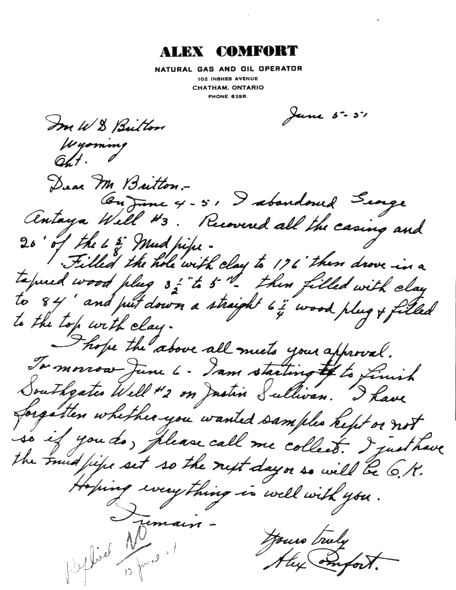 ALEX COMFORT
NATURAL GAS AND OIL OPERATOR
102 INSHES AVENUE
CHATHAM, ONTARIO
PHONE 835R.
June 5-51
Mr W D Britton
Wyoming
Ont.
Dear Mr. Britton:-
On June 4-51 I abandoned George
Antaya Well #3. Recovered all the casing and
20' of the 6 5/8 Mud pipe-
Filled the hole with clay to 176' then drove in a
tapered wood plug 3 1/2" to 5" - then filled with clay
to 84' and put down a straight 6 1/4 wood plug & filled
to the top with clay-
I hope the above all meets your approval.
Tomorrow June 6- I am starting to finish
Southgates Well #2 on Justin Sullivan. I have
forgotten whether you wanted samples kept or not
so if you do, please call me collect. I just have
the mud pipe set so the next day or so will be O.K.
Hoping everything is well with you.
I remain-
Yours truly
Alex Comfort.
Replied NO
12 June 51